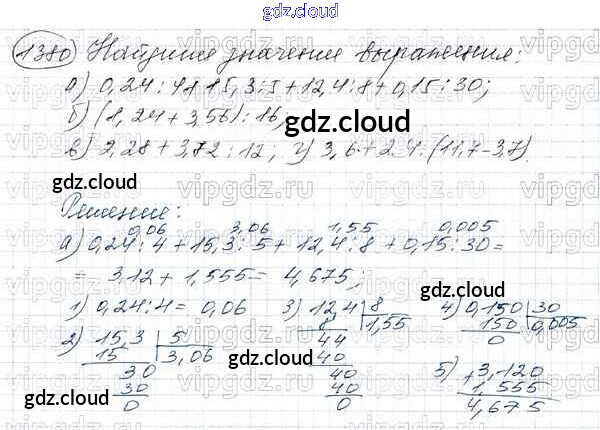 gdz.cloud
1380 Найдите значения выражения:
а) 0,24 : 4 + 15,3 : 5 + 12,4 : 8 + 0,15 : 30;
б) (1,24 + 3,56) : 16;
gdz.cloud
в) 2,28 + 3,72 : 12; г) 3,6 + 2,4 : (11,7 - 3,7).
gdz.cloud
Решение:
0,06 3,06 1,55 0,005
а) 0,24 : 4 + 15,3 : 5 + 12,4 : 8 + 0,15 : 30 =
= 3,12 + 1,555 = 4,675;
gdz.cloud
1) 0,24 : 4 = 0,06 3) 12,4 8 4) 0,150 30
8 1,55 150 0,005
2) 15,3 5 44 0
15 3,06 40
gdz.cloud
30 40 5) + 3,120
30 40 1,555
0 0 4,675
gdz.cloud
gdz.cloud
gdz.cloud